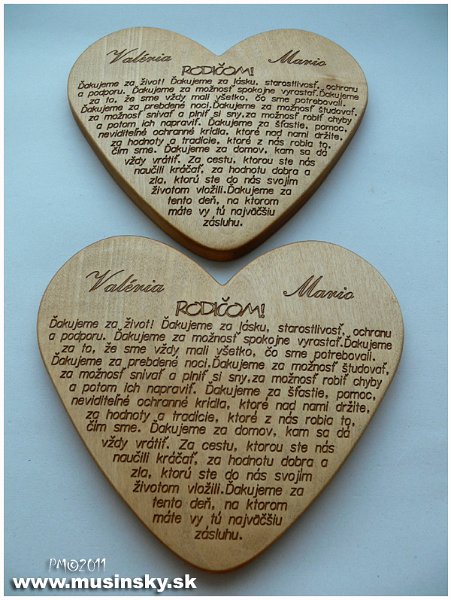 Valéria Mario
RODIČOM!
Ďakujeme za život! Ďakujeme za lásku, starostlivosť, ochranu
a podporu. Ďakujeme za možnosť spokojne vyrastať.Ďakujeme
za to, že sme vždy mali všetko, čo sme potrebovali.
Ďakujeme za prebdené noci.Ďakujeme za možnosť študovať,
za možnosť snívať a plniť si sny,za možnosť robiť chyby
a potom ich napraviť. Ďakujeme za šťastie, pomoc,
neviditeľné ochranné krídla, ktoré nad nami držíte,
za hodnoty a tradície, ktoré z nás robia to,
čím sme. Ďakujeme za domov, kam sa dá
vždy vrátiť. Za cestu, ktorou ste nás
naučili kráčať, za hodnotu dobra a
zla, ktorú ste do nás svojím
životom vložili.Ďakujeme za
tento deň, na ktorom
máte vy tú najväčšiu
zásluhu.
Valéria Mario
RODIČOM!
Ďakujeme za život! Ďakujeme za lásku, starostlivosť, ochranu
a podporu. Ďakujeme za možnosť spokojne vyrastať.Ďakujeme
za to, že sme vždy mali všetko, čo sme potrebovali.
Ďakujeme za prebdené noci.Ďakujeme za možnosť študovať,
za možnosť snívať a plniť si sny,za možnosť robiť chyby
a potom ich napraviť. Ďakujeme za šťastie, pomoc,
neviditeľné ochranné krídla, ktoré nad nami držíte,
za hodnoty a tradície, ktoré z nás robia to,
čím sme. Ďakujeme za domov, kam sa dá
vždy vrátiť. Za cestu, ktorou ste nás
naučili kráčať, za hodnotu dobra a
zla, ktorú ste do nás svojím
životom vložili.Ďakujeme za
tento deň, na ktorom
máte vy tú najväčšiu
zásluhu.
PM©2011
www.musinsky.sk